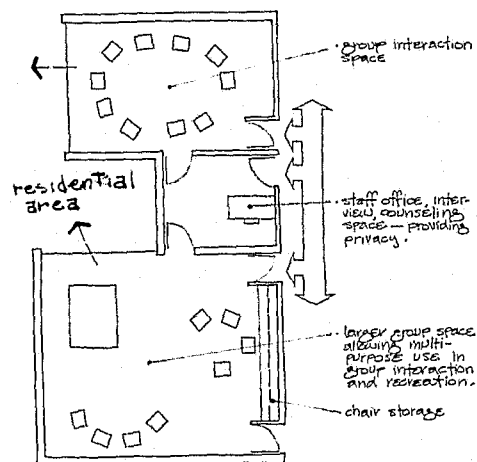 group interaction
space
residential
area
staff office, inter-
view, counseling
space — providing
privacy.
larger group space
allowing multi-
purpose use in
group interaction
and recreation.
chair storage